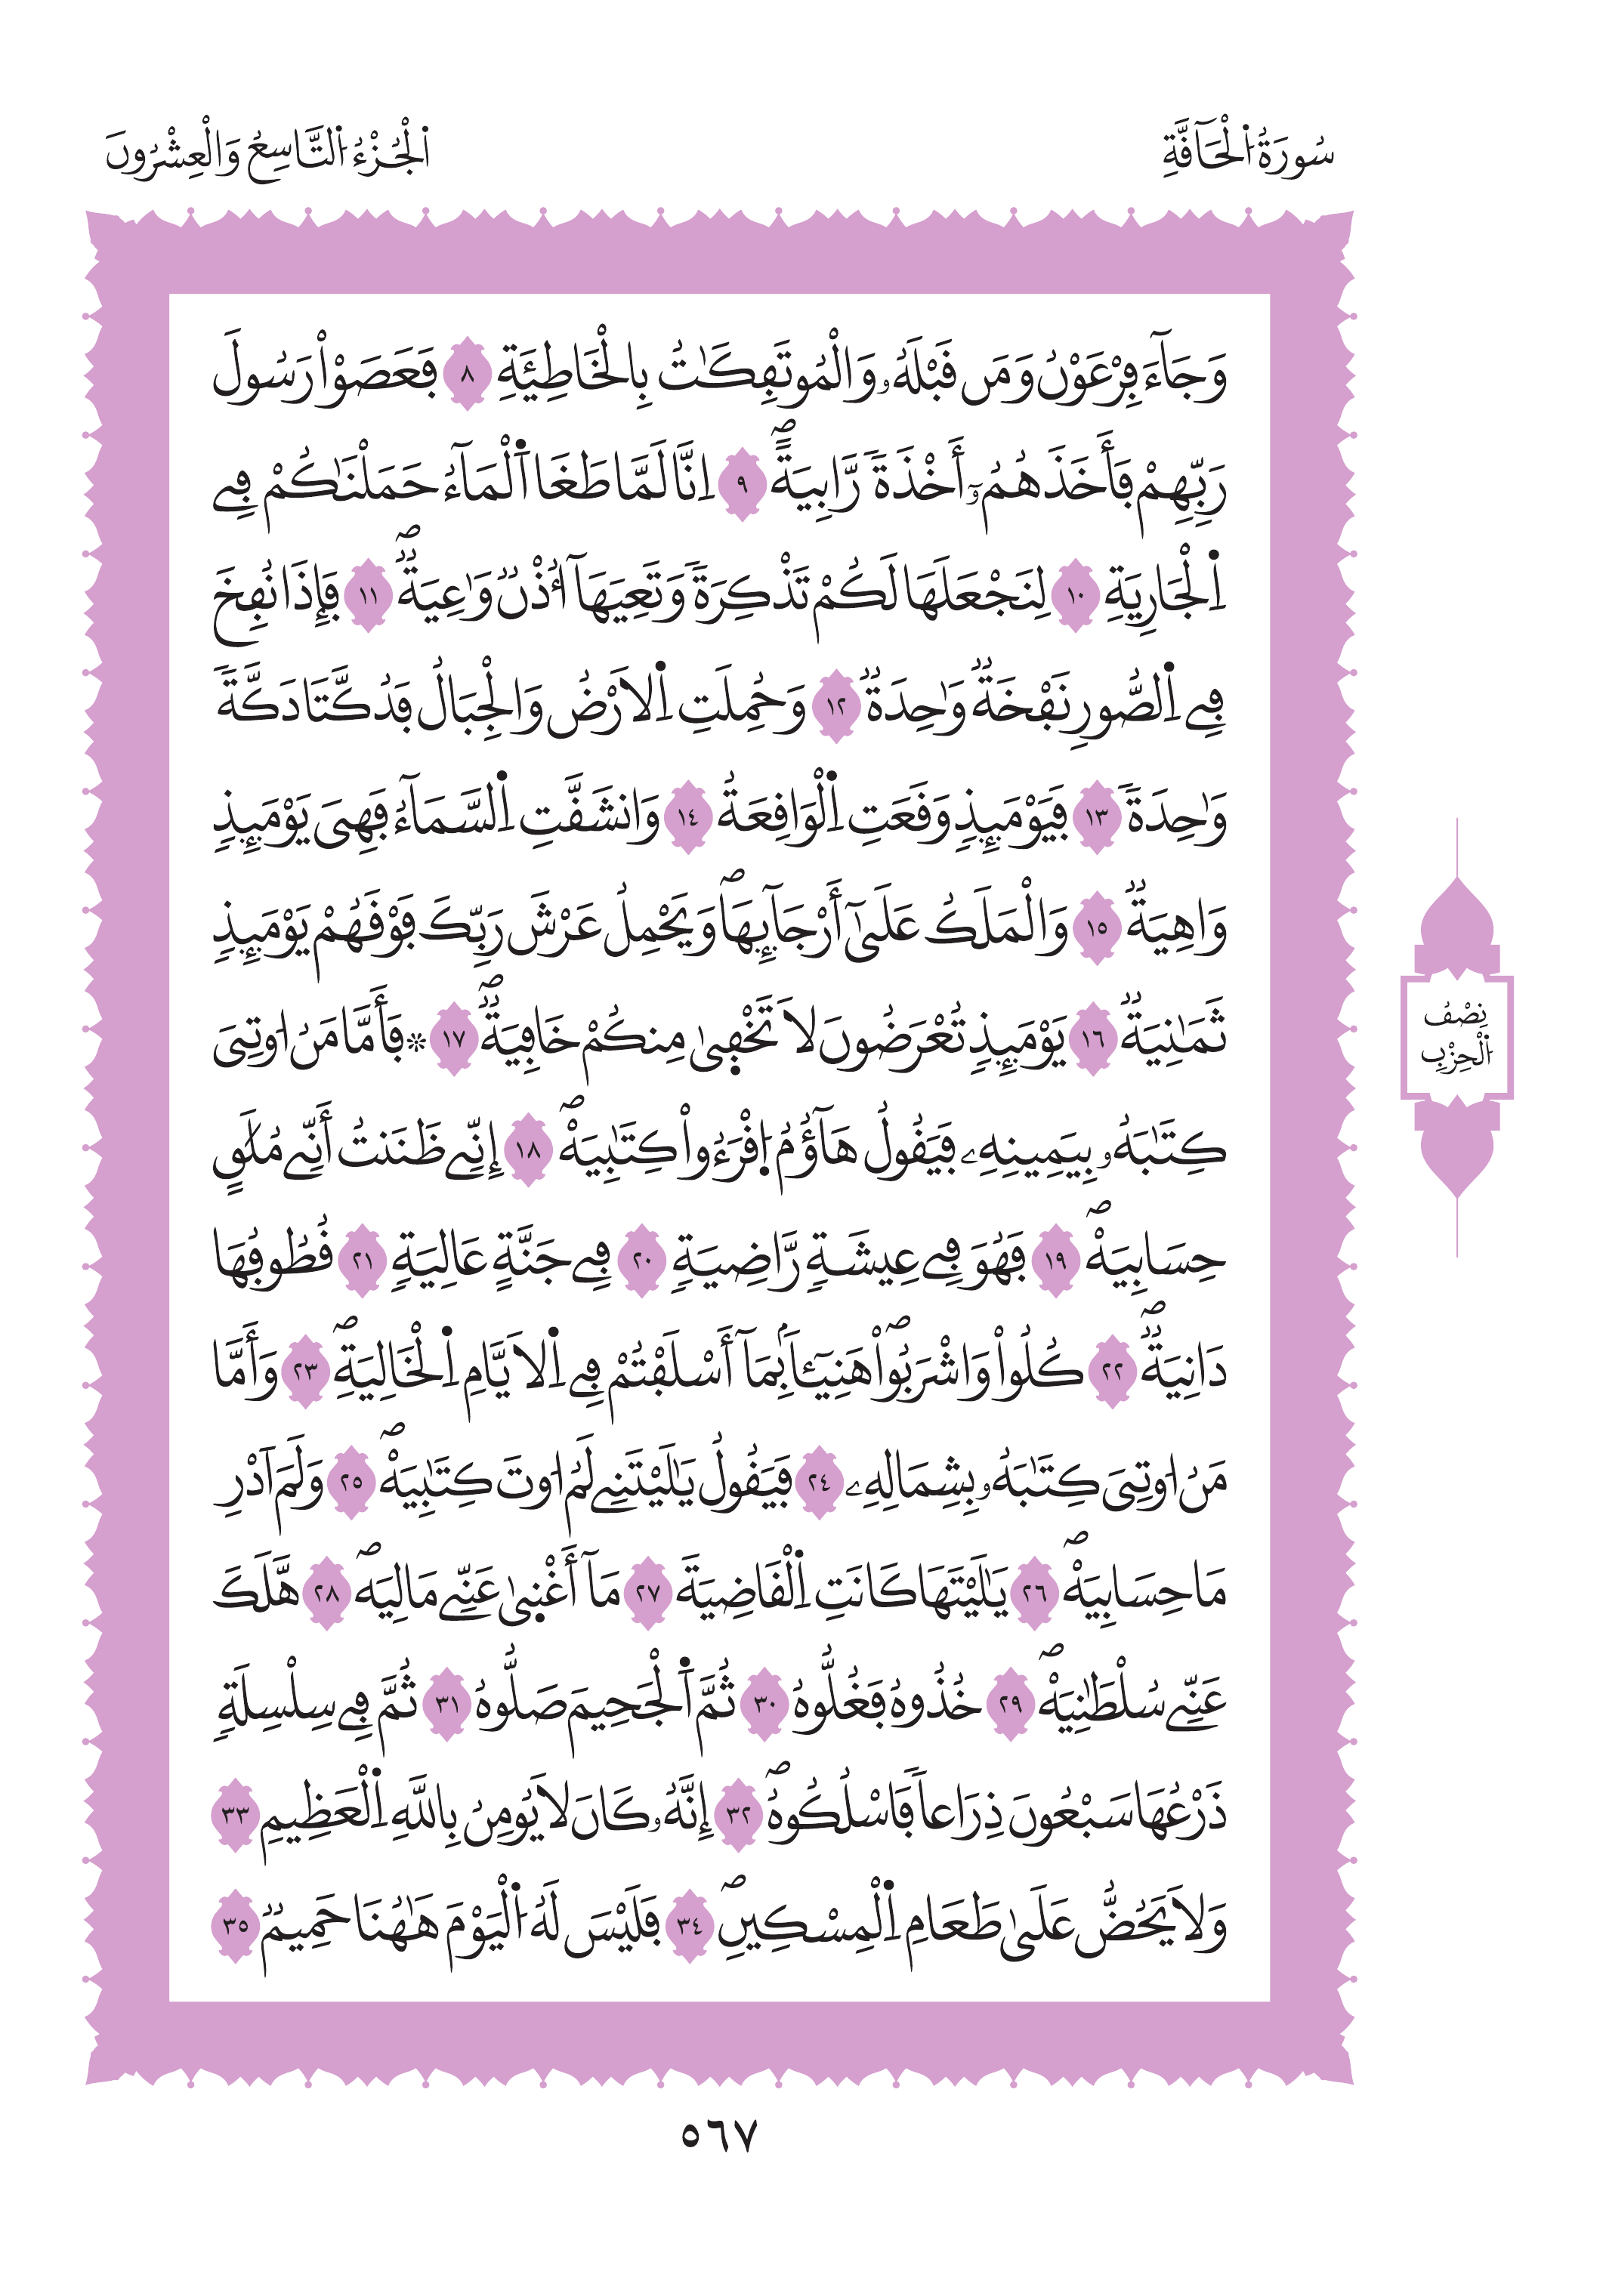 سُورَةُ اُ۬لْحَآقَّةِ
اَ۬لْجُزْءُ اُ۬لتَّاسِعُ وَالْعِشْرُونَ
وَجَآءَ فِرْعَوْنُ وَمَن قَبْلَهُۥ وَالْمُوتَفِكَٰتُ بِالْخَاطِئَةِ ٨ فَعَصَوْاْ رَسُولَ
رَبِّهِمْ فَأَخَذَهُمُۥٓ أَخْذَةٗ رَّابِيَةًۖ ٩ اِنَّا لَمَّا طَغَا اَ۬لْمَآءُ حَمَلْنَٰكُمْ فِے
اِ۬لْجَارِيَةِ ١٠ لِنَجْعَلَهَا لَكُمْ تَذْكِرَةٗ وَتَعِيَهَآ أُذْنٞ وَٰعِيَةٞۖ ١١ فَإِذَا نُفِخَ
فِے اِ۬لصُّورِ نَفْخَةٞ وَٰحِدَةٞ ١٢ وَحُمِلَتِ اِ۬لَارْضُ وَالْجِبَالُ فَدُكَّتَا دَكَّةٗ
وَٰحِدَةٗ ١٣ فَيَوْمَئِذٖ وَقَعَتِ اِ۬لْوَاقِعَةُ ١٤ وَانشَقَّتِ اِ۬لسَّمَآءُ فَهِىَ يَوْمَئِذٖ
وَاهِيَةٞ ١٥ وَالْمَلَكُ عَلَىٰٓ أَرْجَآئِهَاۖ وَيَحْمِلُ عَرْشَ رَبِّكَ فَوْقَهُمْ يَوْمَئِذٖ
ثَمَٰنِيَةٞ ١٦ يَوْمَئِذٖ تُعْرَضُونَ لَا تَخْف۪ىٰ مِنكُمْ خَافِيَةٞۖ ١٧ * فَأَمَّا مَنُ ا۟وتِىَ
كِتَٰبَهُۥ بِيَمِينِهِۦ فَيَقُولُ هَآؤُمُ اُ۪قْرَءُواْ كِتَٰبِيَهْۖ ١٨ إِنِّے ظَنَنتُ أَنِّے مُلَٰقٍ
حِسَابِيَهْۖ ١٩ فَهُوَ فِے عِيشَةٖ رَّاضِيَةٖ ٢٠ فِے جَنَّةٍ عَالِيَةٖ ٢١ قُطُوفُهَا
دَانِيَةٞۖ ٢٢ كُلُواْ وَاشْرَبُواْۖ هَنِيٓـٔاَۢ بِمَآ أَسْلَفْتُمْ فِے اِ۬لَايَّامِ اِ۬لْخَالِيَةِۖ ٢٣ وَأَمَّا
مَنُ ا۟وتِىَ كِتَٰبَهُۥ بِشِمَالِهِۦ ٢٤ فَيَقُولُ يَٰلَيْتَنِے لَمُ ا۟وتَ كِتَٰبِيَهْۖ ٢٥ وَلَمَ اَدْرِ
مَا حِسَابِيَهْۖ ٢٦ يَٰلَيْتَهَا كَانَتِ اِ۬لْقَاضِيَةَ ٢٧ مَآ أَغْن۪ىٰ عَنِّے مَالِيَهْۖ ٢٨ هَّلَكَ
عَنِّے سُلْطَٰنِيَهْۖ ٢٩ خُذُوهُ فَغُلُّوهُ ٣٠ ثُمَّ اَ۬لْجَحِيمَ صَلُّوهُ ٣١ ثُمَّ فِے سِلْسِلَةٖ
ذَرْعُهَا سَبْعُونَ ذِرَاعاٗ فَاسْلُكُوهُۖ ٣٢ إِنَّهُۥ كَانَ لَا يُومِنُ بِاللَّهِ اِ۬لْعَظِيمِ ٣٣
وَلَا يَحُضُّ عَلَىٰ طَعَامِ اِ۬لْمِسْكِينِۖ ٣٤ فَلَيْسَ لَهُ اُ۬لْيَوْمَ هَٰهُنَا حَمِيمٞ ٣٥
نِصْفُ
اُ۬لْحِزْبِ
٥٦٧